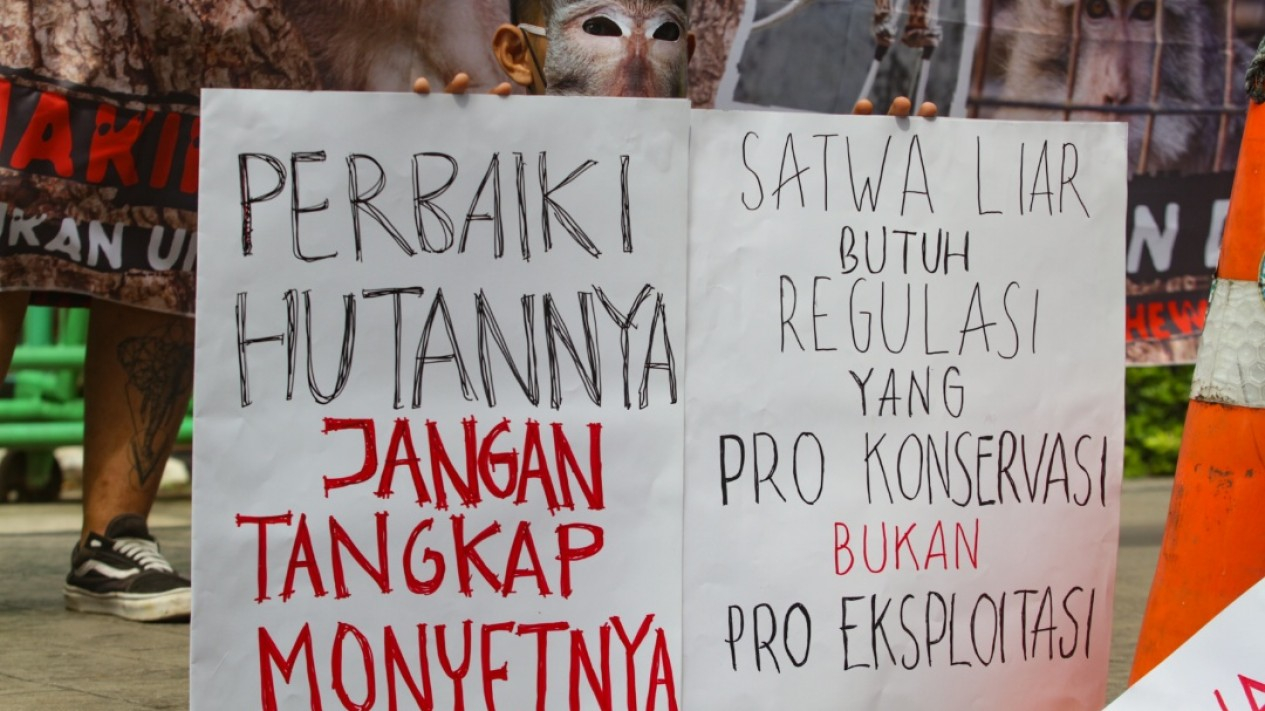 PERBAIKI
HUTANNYA
JANGAN
TANGKAP
MONYETNYA
SATWA LIAR
BUTUH
REGULASI
YANG
PRO KONSERVASI
BUKAN
PRO EKSPLOITASI